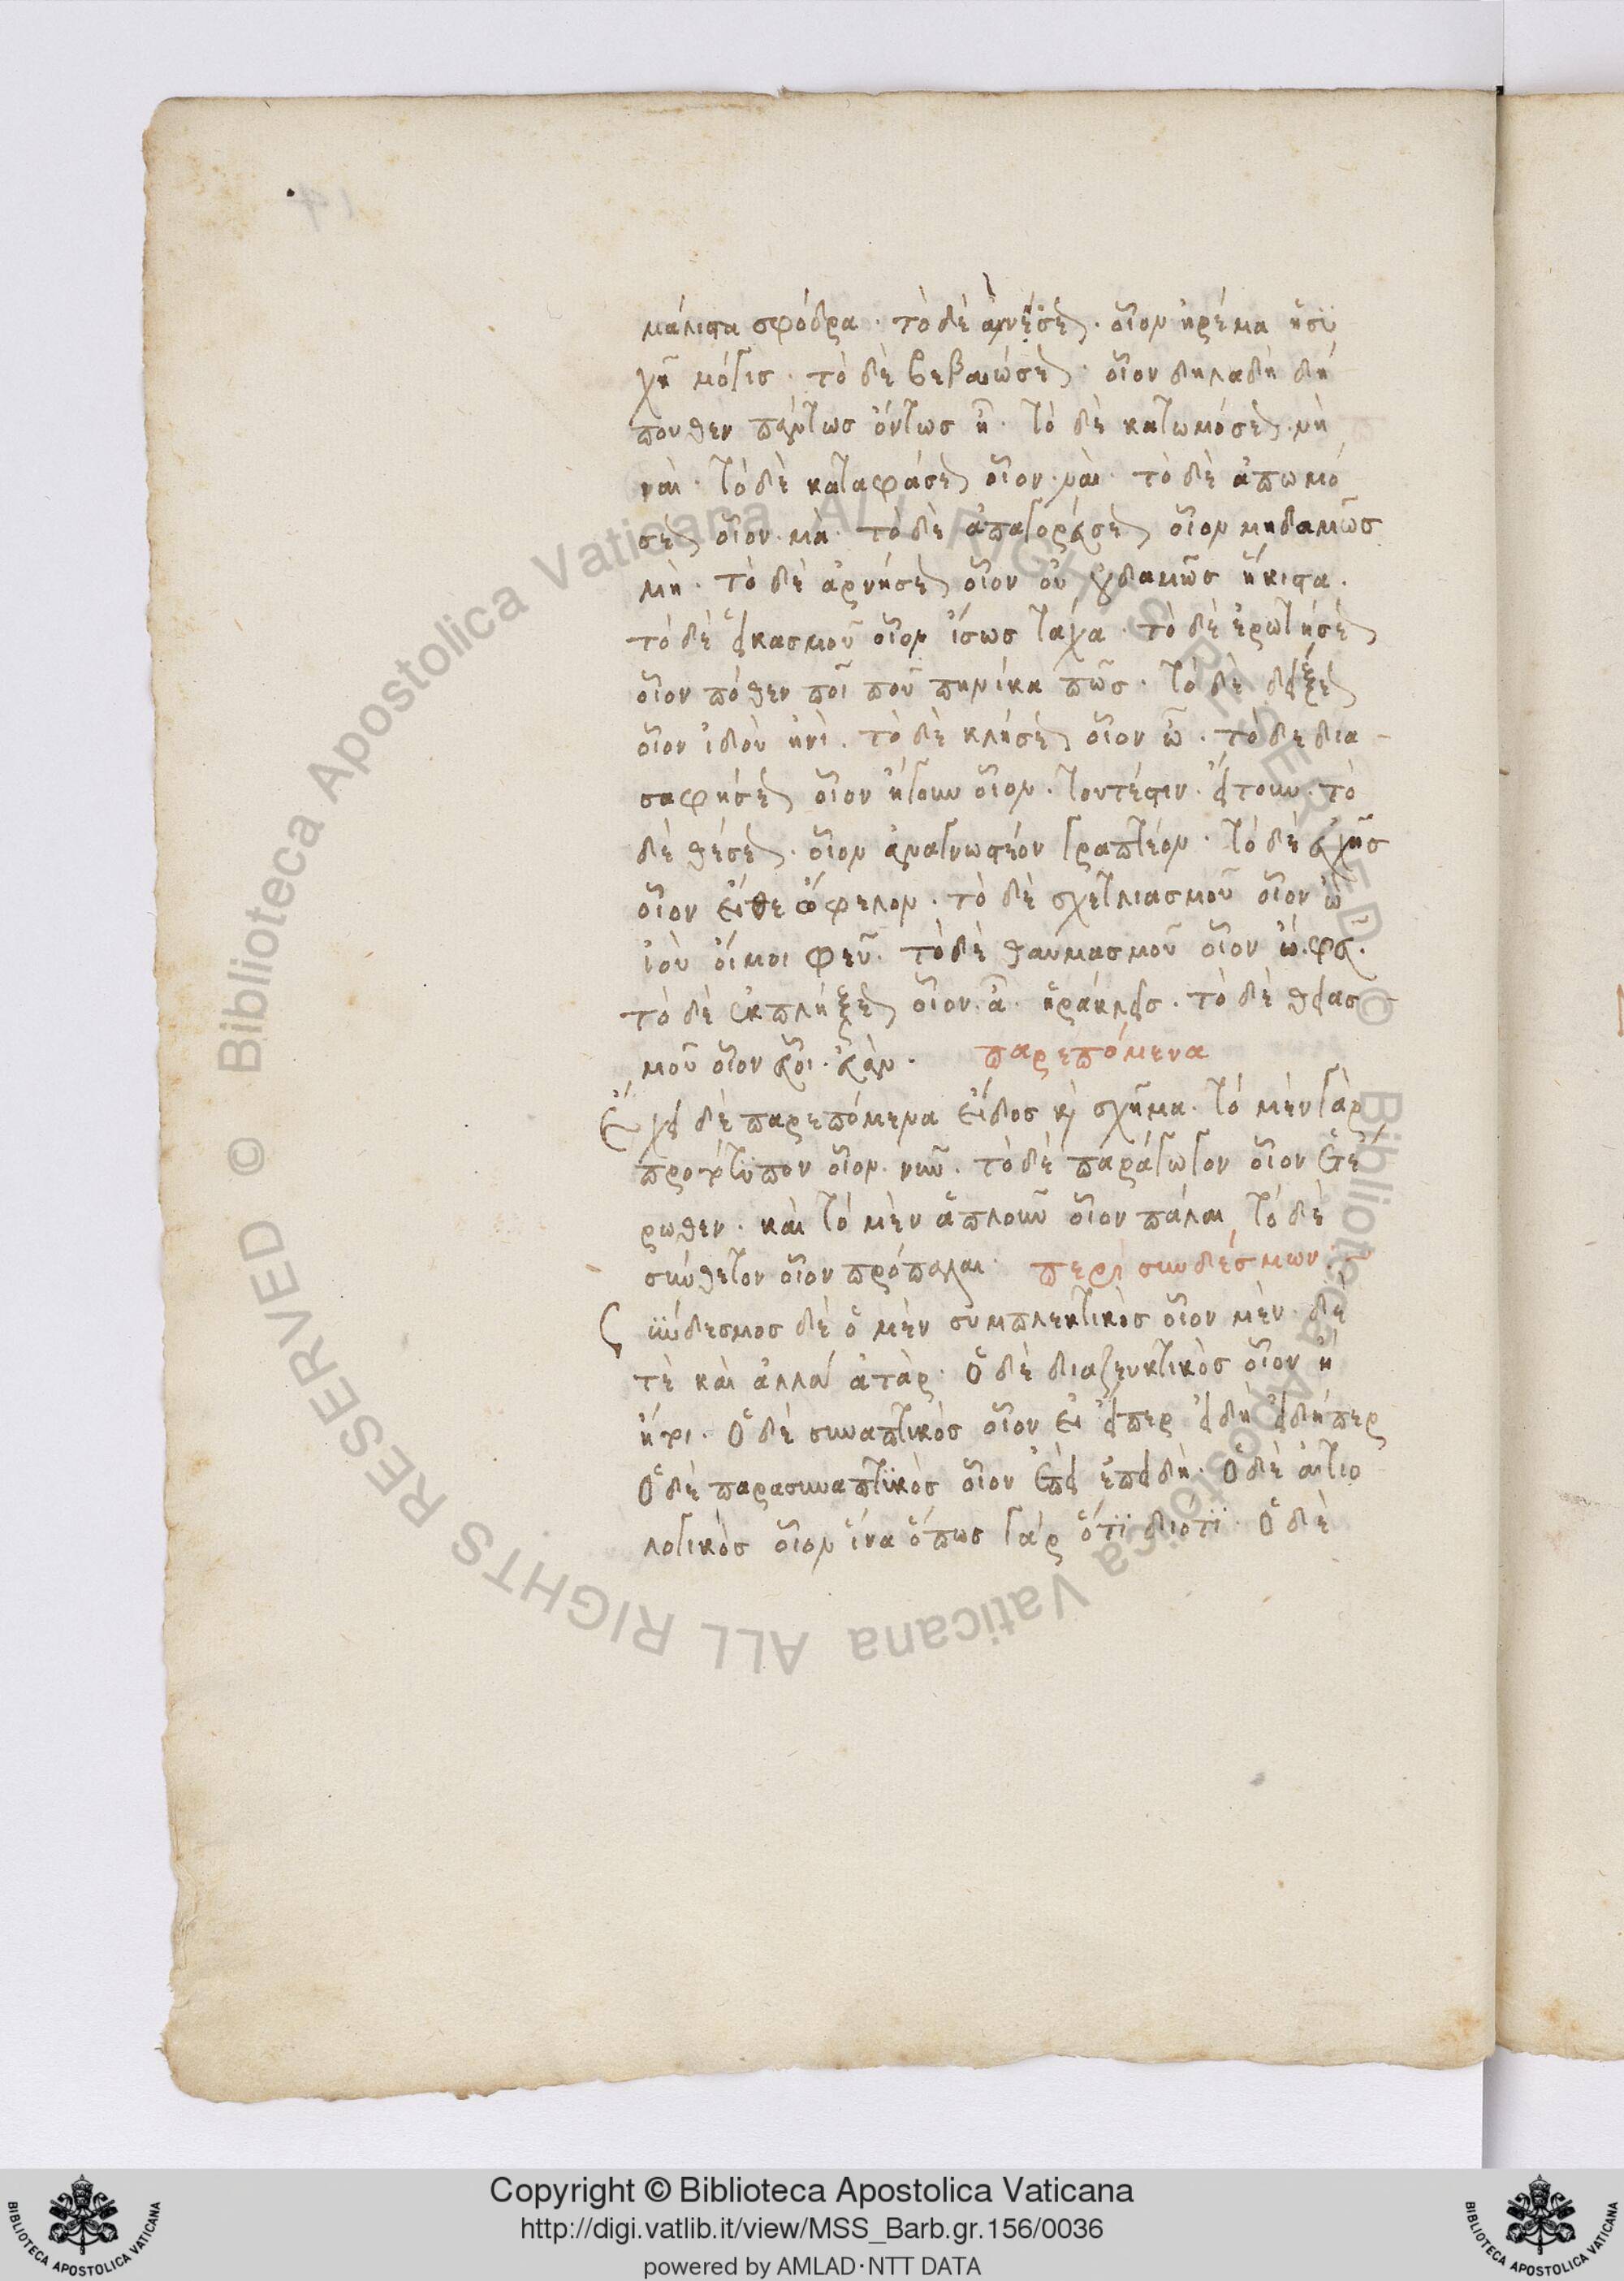 μάλιστα σφόδρα · τὸ δὲ ἀνέσεως · οἷον ἠρέμα ἡσυ
χῆ μόγις · τὸ δὲ βεβαιώσεως · οἷον δηλαδὴ δή
πουθεν πάντως ὄντως ἦ · τὸ δὲ κατωμόσεως · νὴ
ναί · τὸ δὲ καταφάσεως οἷον · ναί · τὸ δὲ ἀπωμό
σεως οἷον · μὰ · τὸ δὲ ἀπαγορεύσεως οἷον μηδαμῶς
μὴ · τὸ δὲ ἀρνήσεως οἷον οὐ οὐδαμῶς ἥκιστα ·
τὸ δὲ εἰκασμοῦ οἷον ἴσως τάχα · τὸ δὲ ἐρωτήσεως
οἷον πόθεν ποῖ ποῦ πηνίκα πῶς · τὸ δὲ δείξεως
οἷον ἰδοὺ ἠνὶ · τὸ δὲ κλήσεως οἷον ὦ · τὸ δὲ δια -
σαφήσεως οἷον ἤγουν οἷον · τουτέστιν · εἴτουν · τὸ
δὲ θέσεως · οἷον ἀναγνωστέον γραπτέον · τὸ δὲ εὐχῆς
οἷον εἴθε ὤφελον · τὸ δὲ σχετλιασμοῦ οἷον ὢ
ἰοὺ οἴμοι φεῦ · τὸ δὲ θαυμασμοῦ οἷον ὢ · φεῦ ·
τὸ δὲ ἐκπλήξεως οἷον · ἆ · ἡράκλεις · τὸ δὲ θειασ
μοῦ οἷον εὖοι · εὐὰν · παρεπόμενα
Ἔχει δὲ παρεπόμενα εἶδος καὶ σχῆμα · τὸ μὲν γὰρ
πρωτότυπον οἷον · νῦν · τὸ δὲ παράγωγον οἷον ἑτέ
ρωθεν · καὶ τὸ μὲν ἁπλοῦν οἷον πάλαι, τὸ δὲ
σύνθετον οἷον πρόπαλαι · περὶ συνδέσμων ·
Σύνδεσμος δὲ ὁ μὲν συμπλεκτικὸς οἷον μὲν · δὲ
τὲ καὶ ἀλλὰ ἀτὰρ · Ὁ δὲ διαζευκτικὸς οἷον ἢ
ἤτοι · Ὁ δὲ συναπτικὸς οἷον εἰ εἴπερ εἰ δὴ εἰδήπερ
Ὁ δὲ παρασυναπτϊκὸς οἷον ἐπεὶ ἐπειδὴ · Ὁ δὲ αἰτιο
λογικὸς οἷον ἵνα ὅπως γὰρ ὅτϊ διότϊ · Ὁ δὲ
Copyright © Biblioteca Apostolica Vaticana
http://digi.vatlib.it/view/MSS_Barb.gr.156/0036
powered by AMLAD·NTT DATA